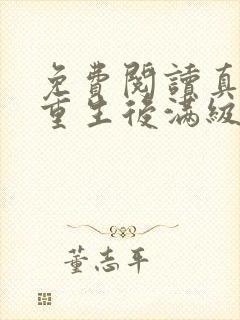 免費閱讀真
重生後滿級
董志平